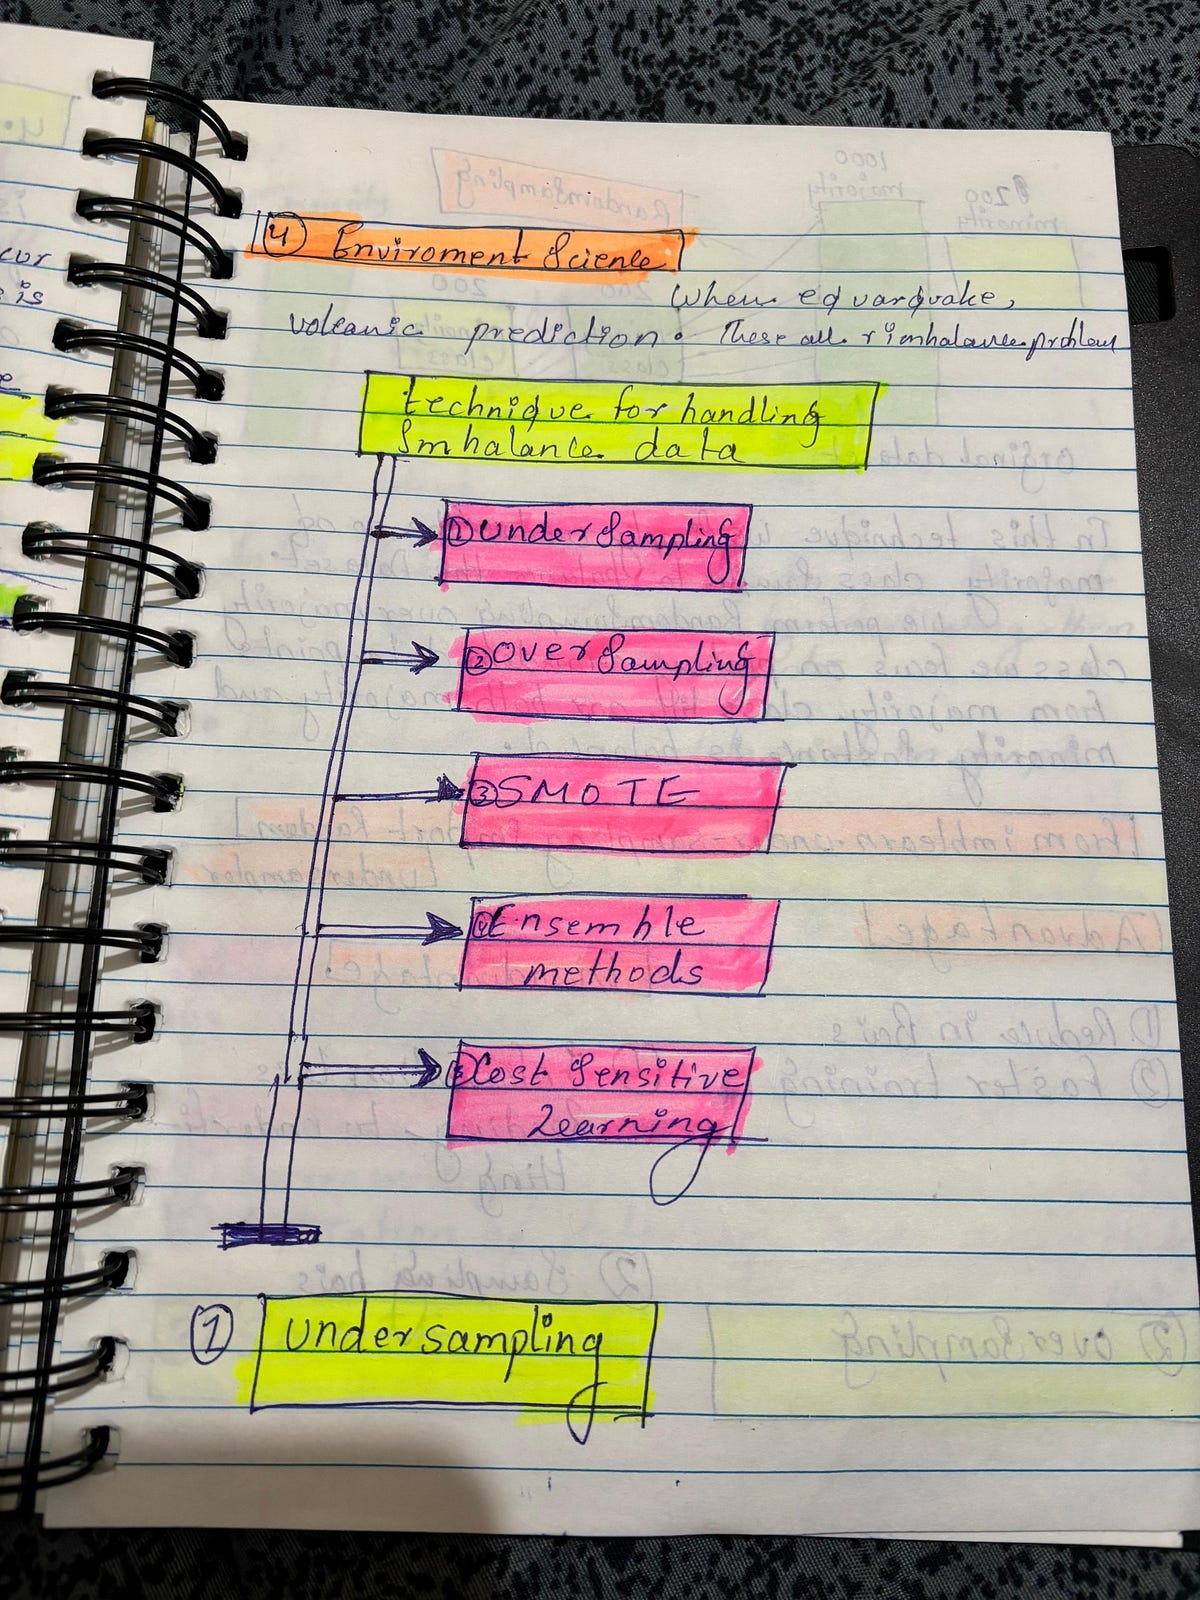 4 Enviroment Science
When eqvarquake,
volcanic prediction. These all r imbalance problem
technique for handling
Imbalance data
1 Under Sampling
2 Over Sampling
3 SMOTE
4 Ensemble
methods
5 Cost Sensitive
Learning
1 Undersampling
cur
is